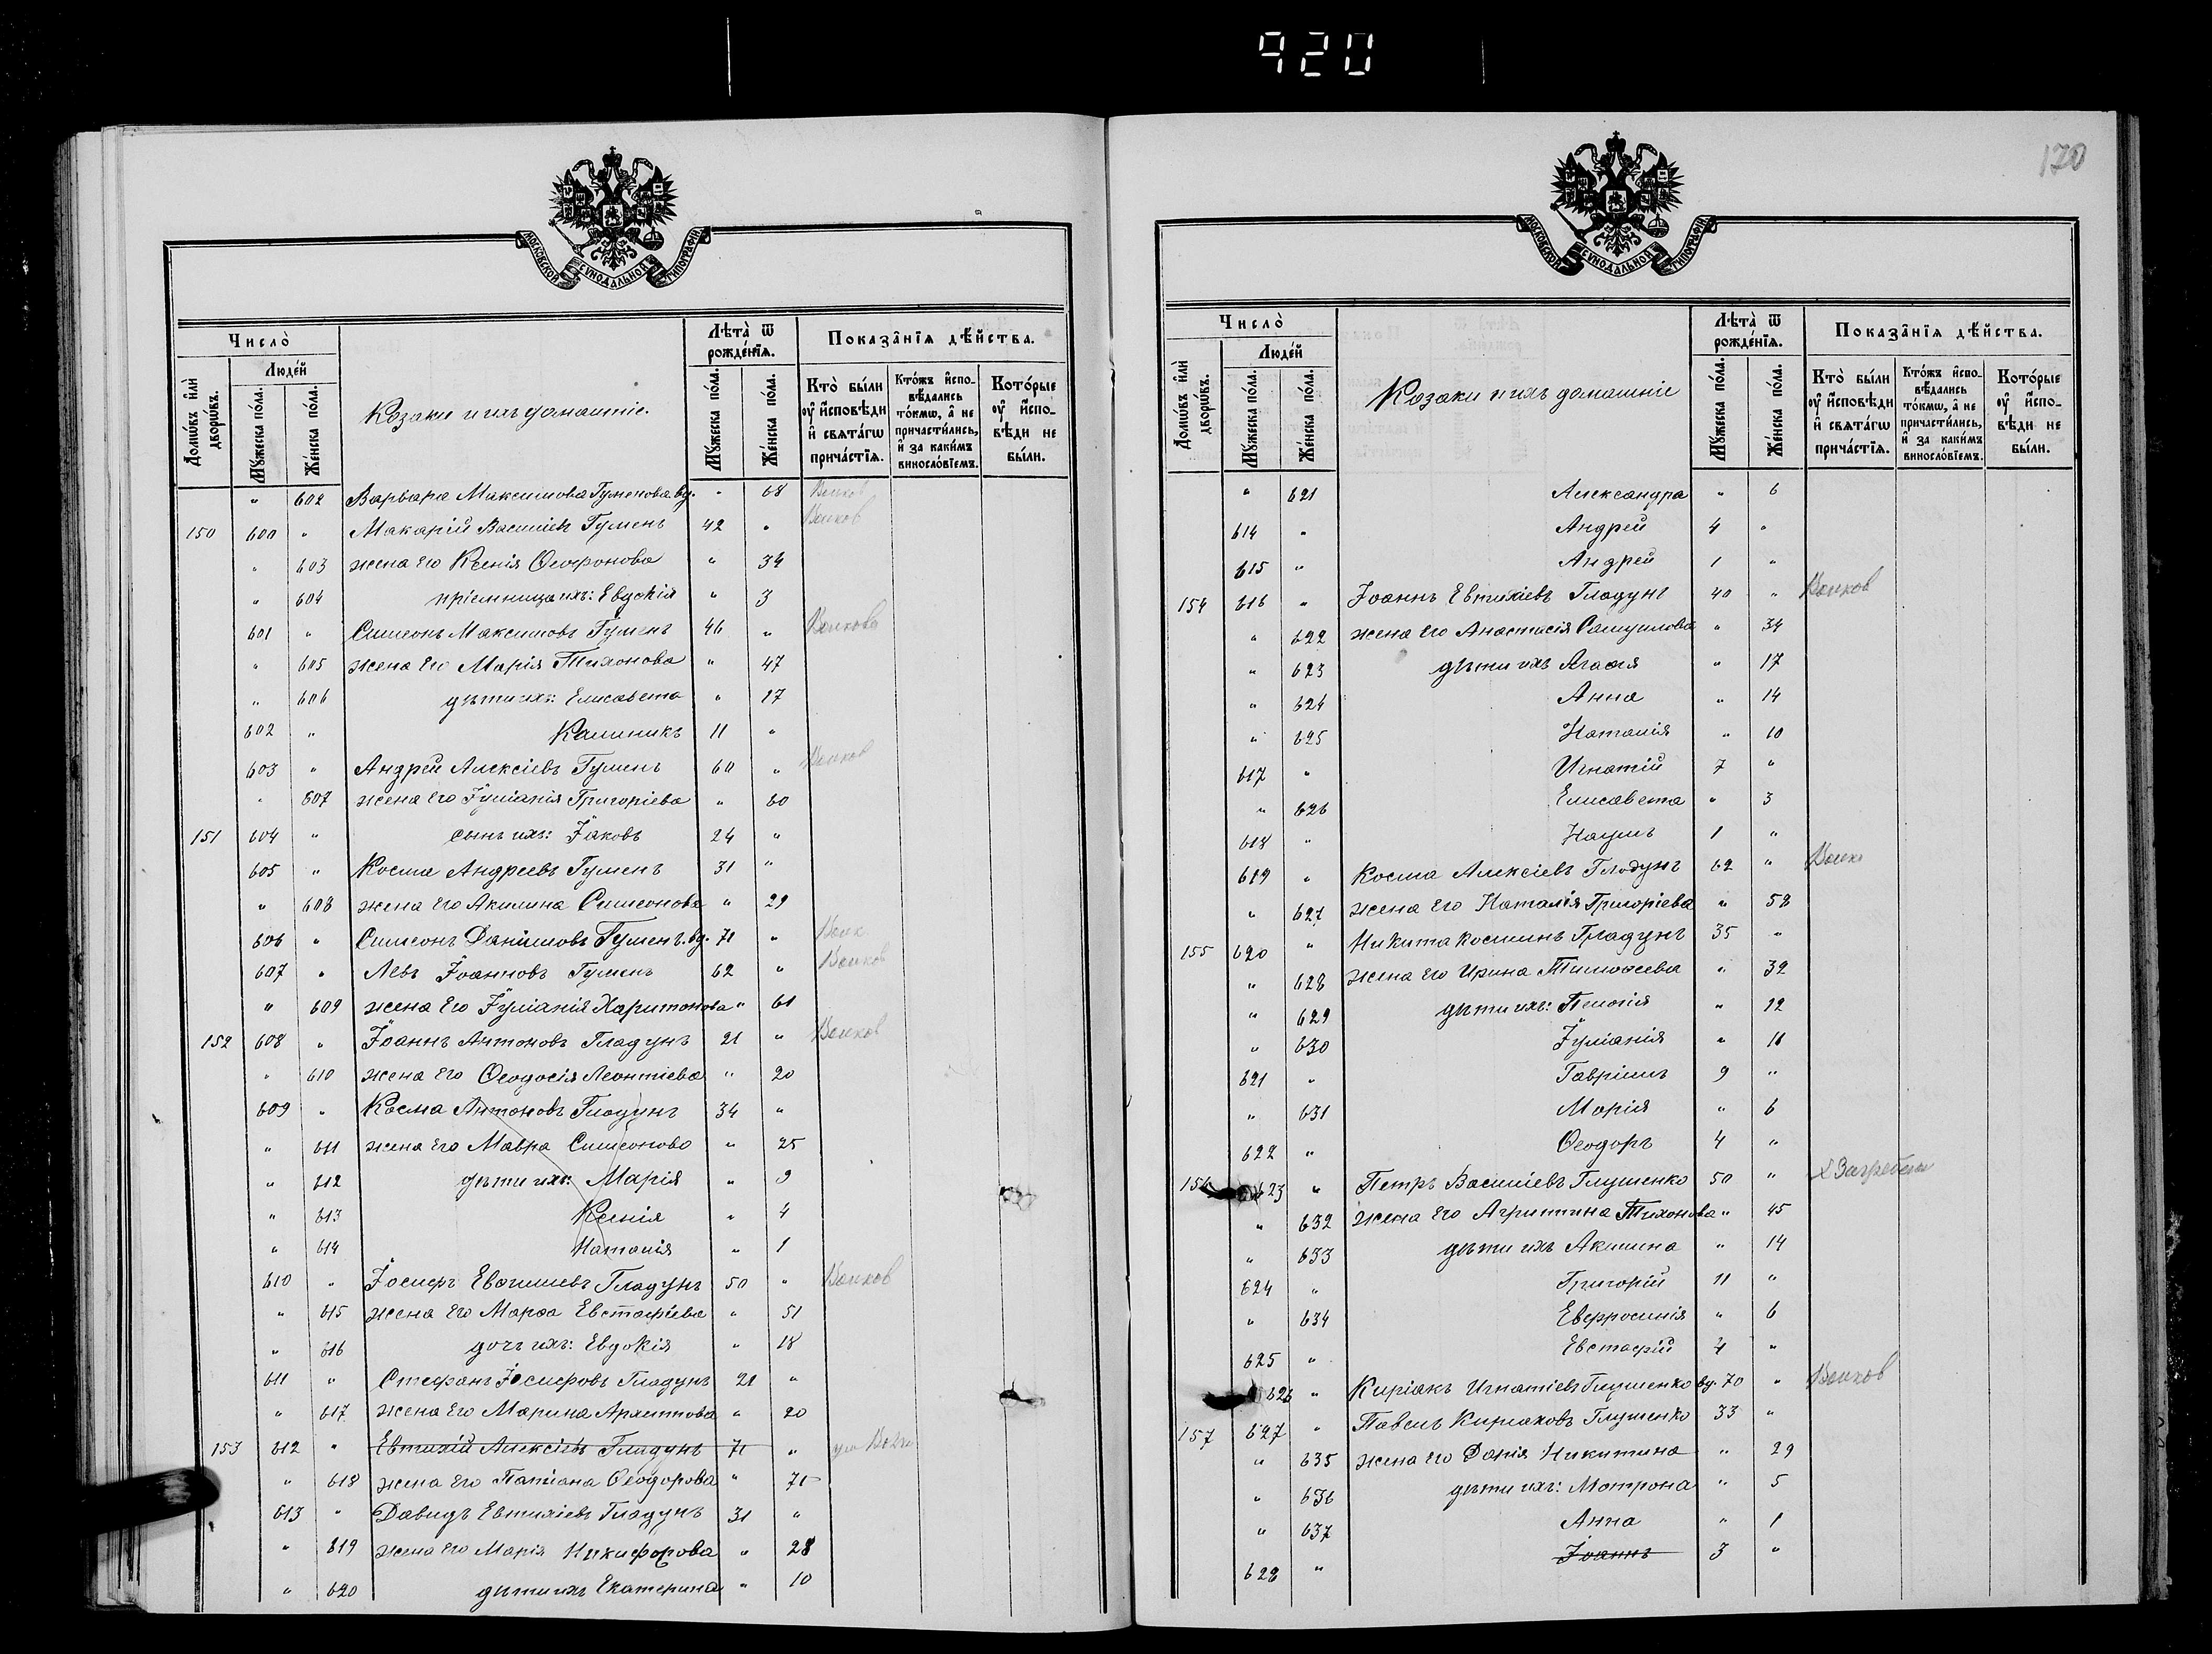 920
МОСКОВСКОЙ СѴНОДАЛЬНОЙ ТИПОГРАФІИ
Число̀
Лѣта̀ ѿ рожде́нїѧ.
Показа̑нїѧ дѣ́йства.
Домѡ́въ и҆лѝ дворѡ́въ.
Люде́й
Мꙋ́жеска по́ла.
Же́нска по́ла.
Козаки и ихъ домашніе.
Мꙋ́жеска по́ла.
Же́нска по́ла.
Кто̀ бы́ли ᲂу҆ и҆́сповѣди и҆ свѧта́гѡ прича́стїѧ.
Кто́жъ и҆спо-вѣ́дались то́кмѡ, а҆ не причасти́лись, и҆ за каки́мъ виносло́вїемъ.
Кото́рые ᲂу҆ и҆́спо-вѣди не бы́ли.
" 602 Варвара Максимова Гуменова вд. " 68 Волков
150 600 " Макарій Василіевъ Гумень 42 " Волков
" 603 жена его Ксенія Ѳеофонова " 34
" 604 пріемница ихъ: Евдокія " 3
601 " Симеонъ Максимовъ Гумень 46 " Волков
" 605 жена его Марія Тихонова " 47
" 606 дѣти ихъ: Елисавета " 17
602 " Калиникъ 11 "
603 " Андрей Алексіевъ Гумень 60 " Волков
" 607 жена его Іуліанія Григоріева " 60
151 604 " сынъ ихъ: Іаковъ 24 "
605 " Косма Андреевъ Гумень 31 "
" 608 жена его Акилина Симеонова " 29
606 " Симеонъ Даніиловъ Гумень. вд. 71 " Волк
607 " Левъ Іоанновъ Гумень 62 " Волков
" 609 жена его Іуліанія Харитонова " 61
152 608 " Іоаннъ Антоновъ Гладунъ 21 " Волков
" 610 жена его Ѳеодосія Леонтіева " 20
609 " Косма Антоновъ Гладунъ 34 "
" 611 жена его Мавра Симеонова " 25
" 612 дѣти ихъ: Марія " 9
" 613 Ксенія " 4
" 614 Наталія " 1
610 " Іосифъ Евфиміевъ Гладунъ 50 " Волков
" 615 жена его Марѳа Евстафіева " 51
" 616 дочь ихъ: Евдокія " 18
611 " Стефанъ Іосифовъ Гладунъ 21 "
" 617 жена его Марина Архиппова " 20
153 612 " Евтихій Алексіевъ Гладунъ 71 "
" 618 жена его Татіана Ѳеодорова " 71
613 " Давидъ Евтихіевъ Гладунъ 31 "
" 619 жена его Марія Никифорова " 28
" 620 дѣти ихъ Екатерина " 10
120
МОСКОВСКОЙ СѴНОДАЛЬНОЙ ТИПОГРАФІИ
Число̀
Лѣта̀ ѿ рожде́нїѧ.
Показа̑нїѧ дѣ́йства.
Домѡ́въ и҆лѝ дворѡ́въ.
Люде́й
Мꙋ́жеска по́ла.
Же́нска по́ла.
Козаки и ихъ домашніе
Мꙋ́жеска по́ла.
Же́нска по́ла.
Кто̀ бы́ли ᲂу҆ и҆́сповѣди и҆ свѧта́гѡ прича́стїѧ.
Кто́жъ и҆спо-вѣ́дались то́кмѡ, а҆ не причасти́лись, и҆ за каки́мъ виносло́вїемъ.
Кото́рые ᲂу҆ и҆́спо-вѣди не бы́ли.
" 621 Александра " 6
614 " Андрей 4 "
615 " Андрей 1 "
154 616 " Іоаннъ Евтихіевъ Гладунъ 40 " Волков
" 622 жена его Анастасія Самуилова " 34
" 623 дѣти ихъ Агафія " 17
" 624 Анна " 14
" 625 Наталія " 10
617 " Игнатій 7 "
" 626 Елисавета " 3
618 " Наумъ 1 "
619 " Косма Алексіевъ Гладунъ 62 " Волк
" 627 жена его Наталія Григоріева " 58
155 620 " Никита Космин Гладунъ 35 "
" 628 жена его Ирина Тимоѳеева " 32
" 629 дѣти ихъ: Пелагія " 12
" 630 Іуліанія " 11
621 " Гавріилъ 9 "
" 631 Марія " 6
622 " Ѳеодоръ 4 "
156 623 " Петръ Василіевъ Глушенко 50 "
" 632 жена его Агриппина Тихонова " 45
" 633 дѣти ихъ Акилина " 14
624 " Григорій 11 "
" 634 Евфросинія " 6
625 " Евстафій 4 "
626 " Киріакъ Игнатіевъ Глушенко вд. 70 " Волков
157 627 " Павелъ Киріаковъ Глушенко 33 "
" 635 жена его Дарія Никитина " 29
" 636 дѣти ихъ: Матрона " 5
" 637 Анна " 1
628 " Іоаннъ 3 "